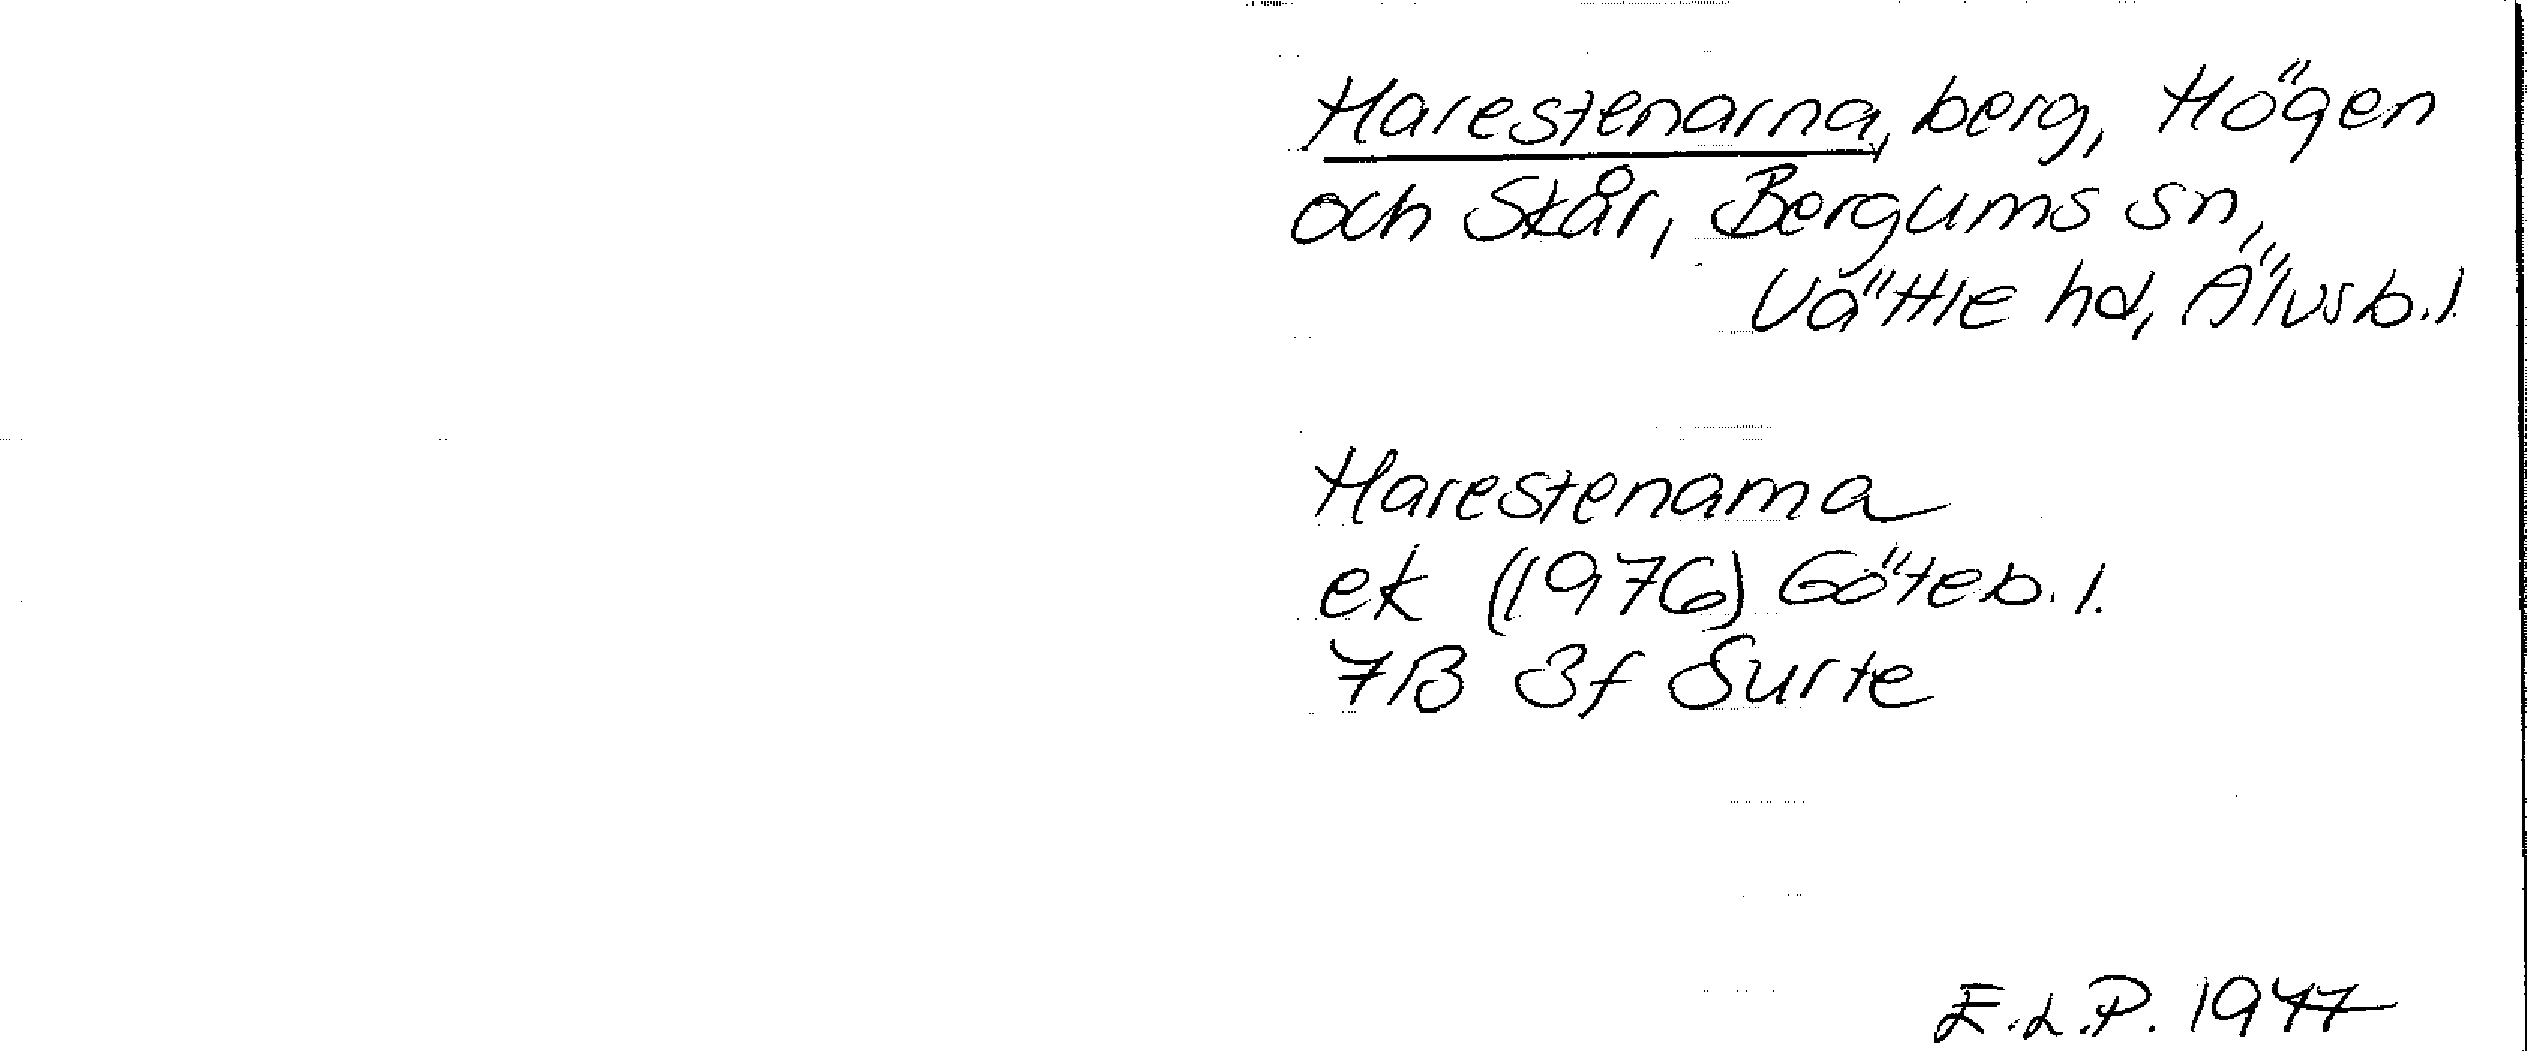 Harestenarna, berg, Högen
och Skår, Bergums sn,
Vättle hd, Älvsb. l.
Harestenarna
ek (1976) Göteb. l.
7B 3f Surte
E.L.P. 1977